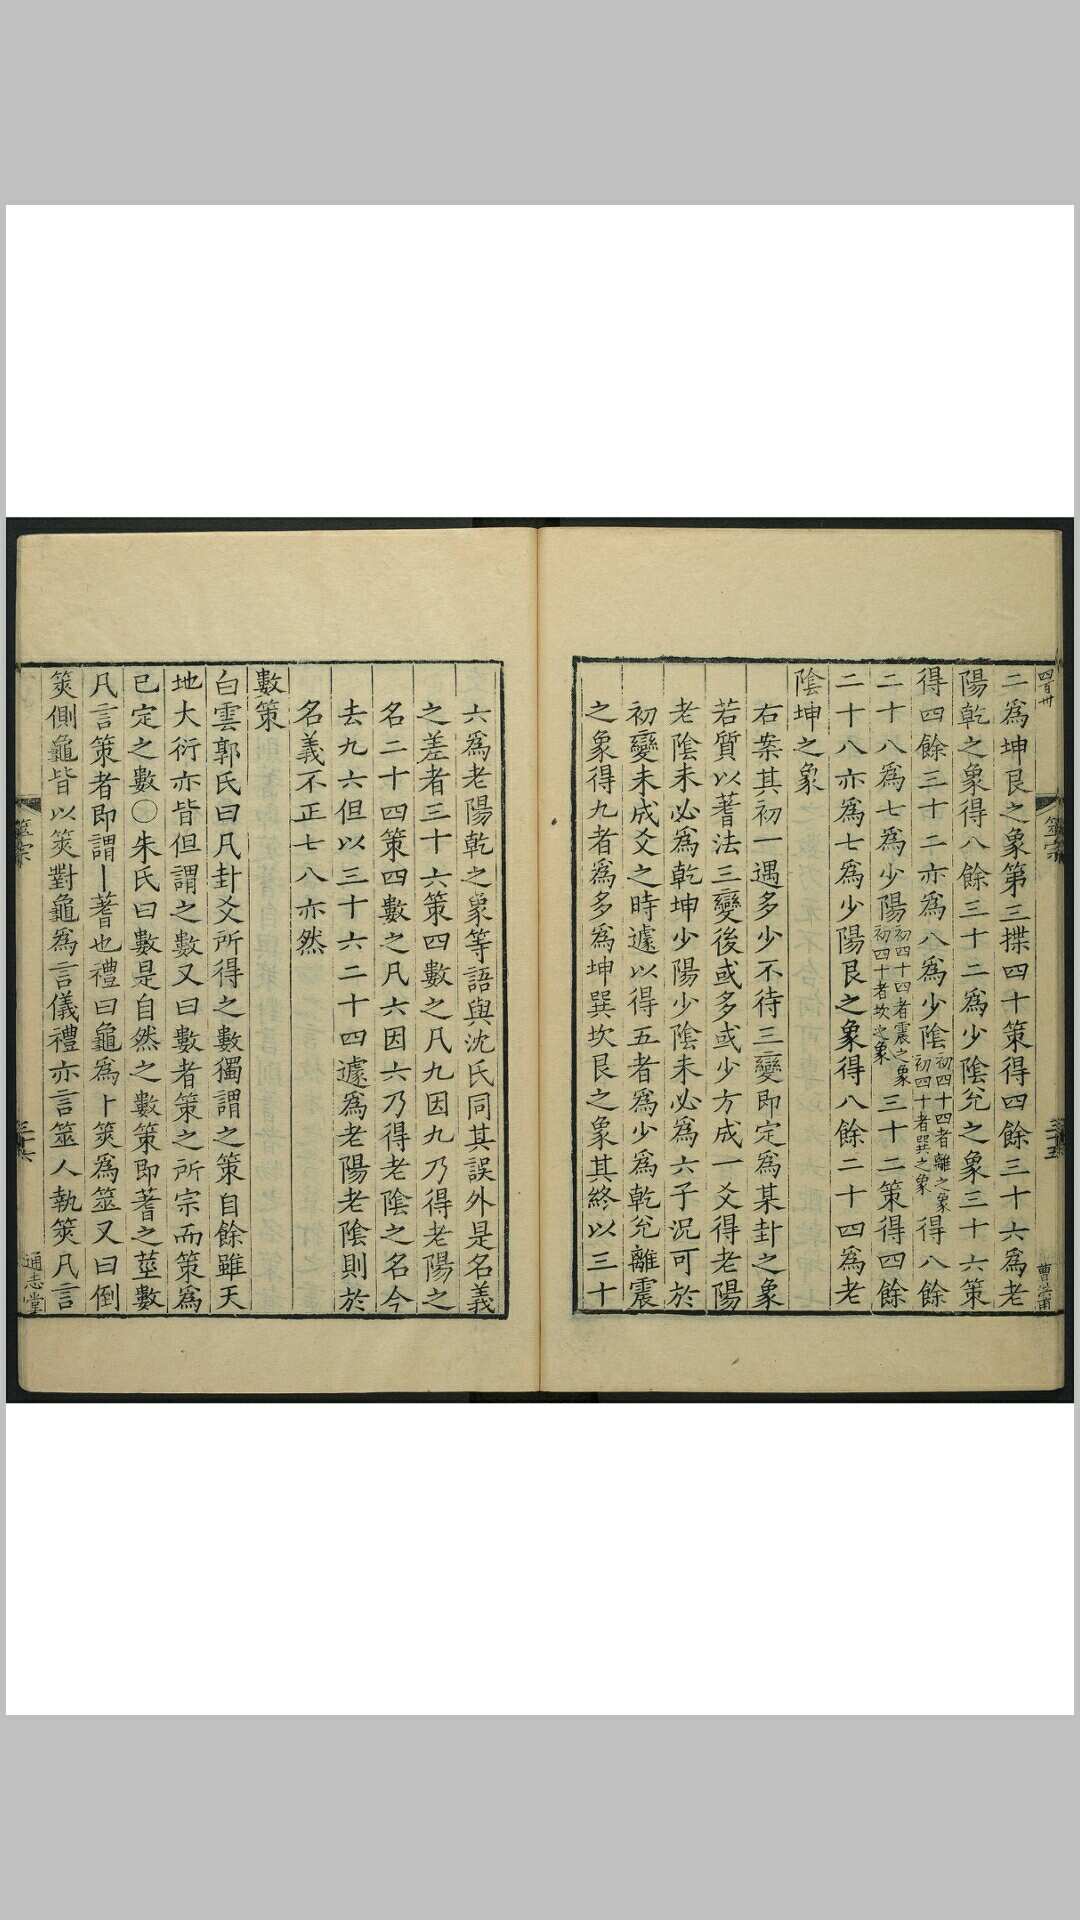 四百卅
筮宗
三十五
曹洪甫
二爲坤艮之象第三揲四十策得四餘三十六爲老
陽乾之象得八餘三十二爲少陰兊之象三十六策
得四餘三十二亦爲八爲少陰初四十四者離之象初四十者巽之象得八餘
二十八爲七爲少陽初四十四者震之象初四十者坎之象三十二策得四餘
二十八亦爲七爲少陽艮之象得八餘二十四爲老
陰坤之象
右案其初一遇多少不待三變即定爲某封之象
若質以蓍法三變後或多或少方成一爻得老陽
老陰未必爲乾坤少陽少陰未必爲六子況可於
初變未成爻之時遽以得五者爲少爲乾兊離震
之象得九者爲多爲坤巽坎艮之象其終以三十
六爲老陽乾之象等語與沈氏同其誤外是名義
之差者三十六策四數之凡九因九乃得老陽之
名二十四策四數之凡六因六乃得老陰之名今
去九六但以三十六二十四遽爲老陽老陰則於
名義不正七八亦然
數策
白雲郭氏曰凡封爻所得之數獨謂之策自餘雖天
地大衍亦皆但謂之數又曰數者策之所宗而策爲
已定之數〇朱氏曰數是自然之數策即蓍之莖數
凡言策者即謂丨蓍也禮曰龜爲卜筴爲筮又曰倒
筴側龜皆以筴對龜爲言儀禮亦言筮人執筴凡言
筮宗
三十六
通志堂